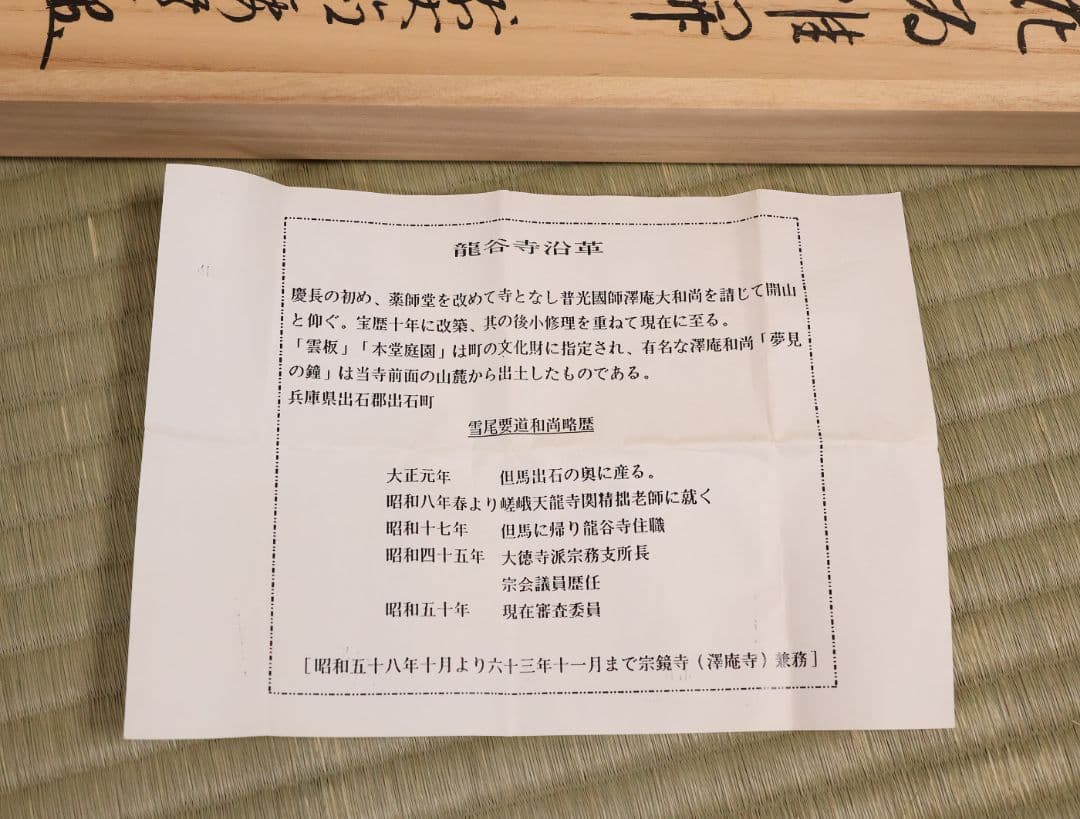 龍谷寺沿革
慶長の初め、薬師堂を改めて寺となし普光國師澤庵大和尚を請じて開山
と仰ぐ。宝歴十年に改築、其の後小修理を重ねて現在に至る。
「雲板」「本堂庭園」は町の文化財に指定され、有名な澤庵和尚「夢見
の鐘」は当寺前面の山麓から出土したものである。
兵庫県出石郡出石町
雪尾要道和尚略歴
大正元年 但馬出石の奥に産る。
昭和八年春より嵯峨天龍寺関精拙老師に就く
昭和十七年 但馬に帰り龍谷寺住職
昭和四十五年 大徳寺派宗務支所長
宗会議員歴任
昭和五十年 現在審査委員
［昭和五十八年十月より六十三年十一月まで宗鏡寺（澤庵寺）兼務］